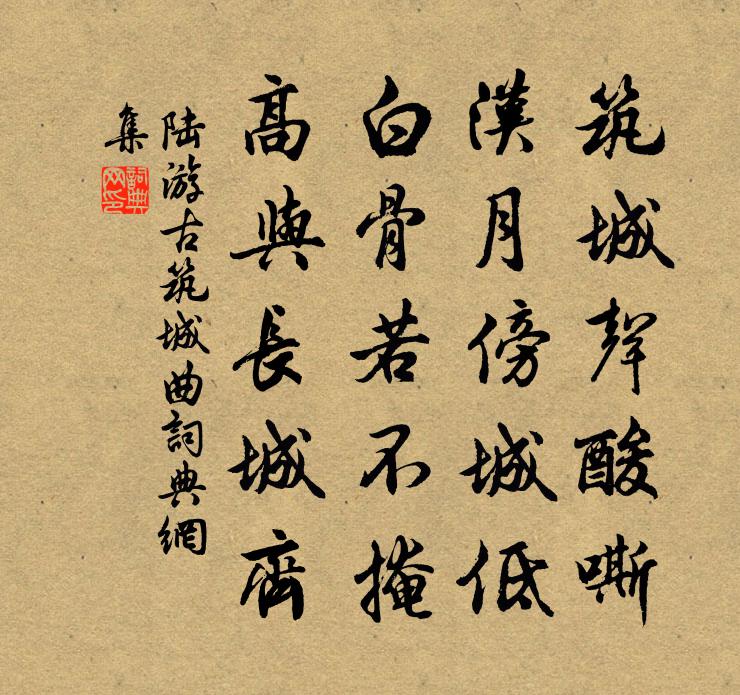 筑城聲酸嘶
漢月傍城低
白骨若不掩
高與長城齊
陆游古筑城曲詞典網
集
詞典
网印